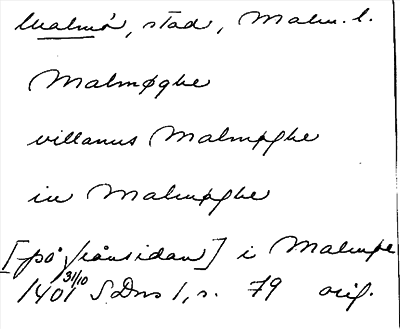 Malmö, stad, Malm. l.
Malmøghe
villanus Malmøghe
in Malmøghe
[på frånsidan] i Malmøe
1401 31/10 SDns 1, s. 79 orig.